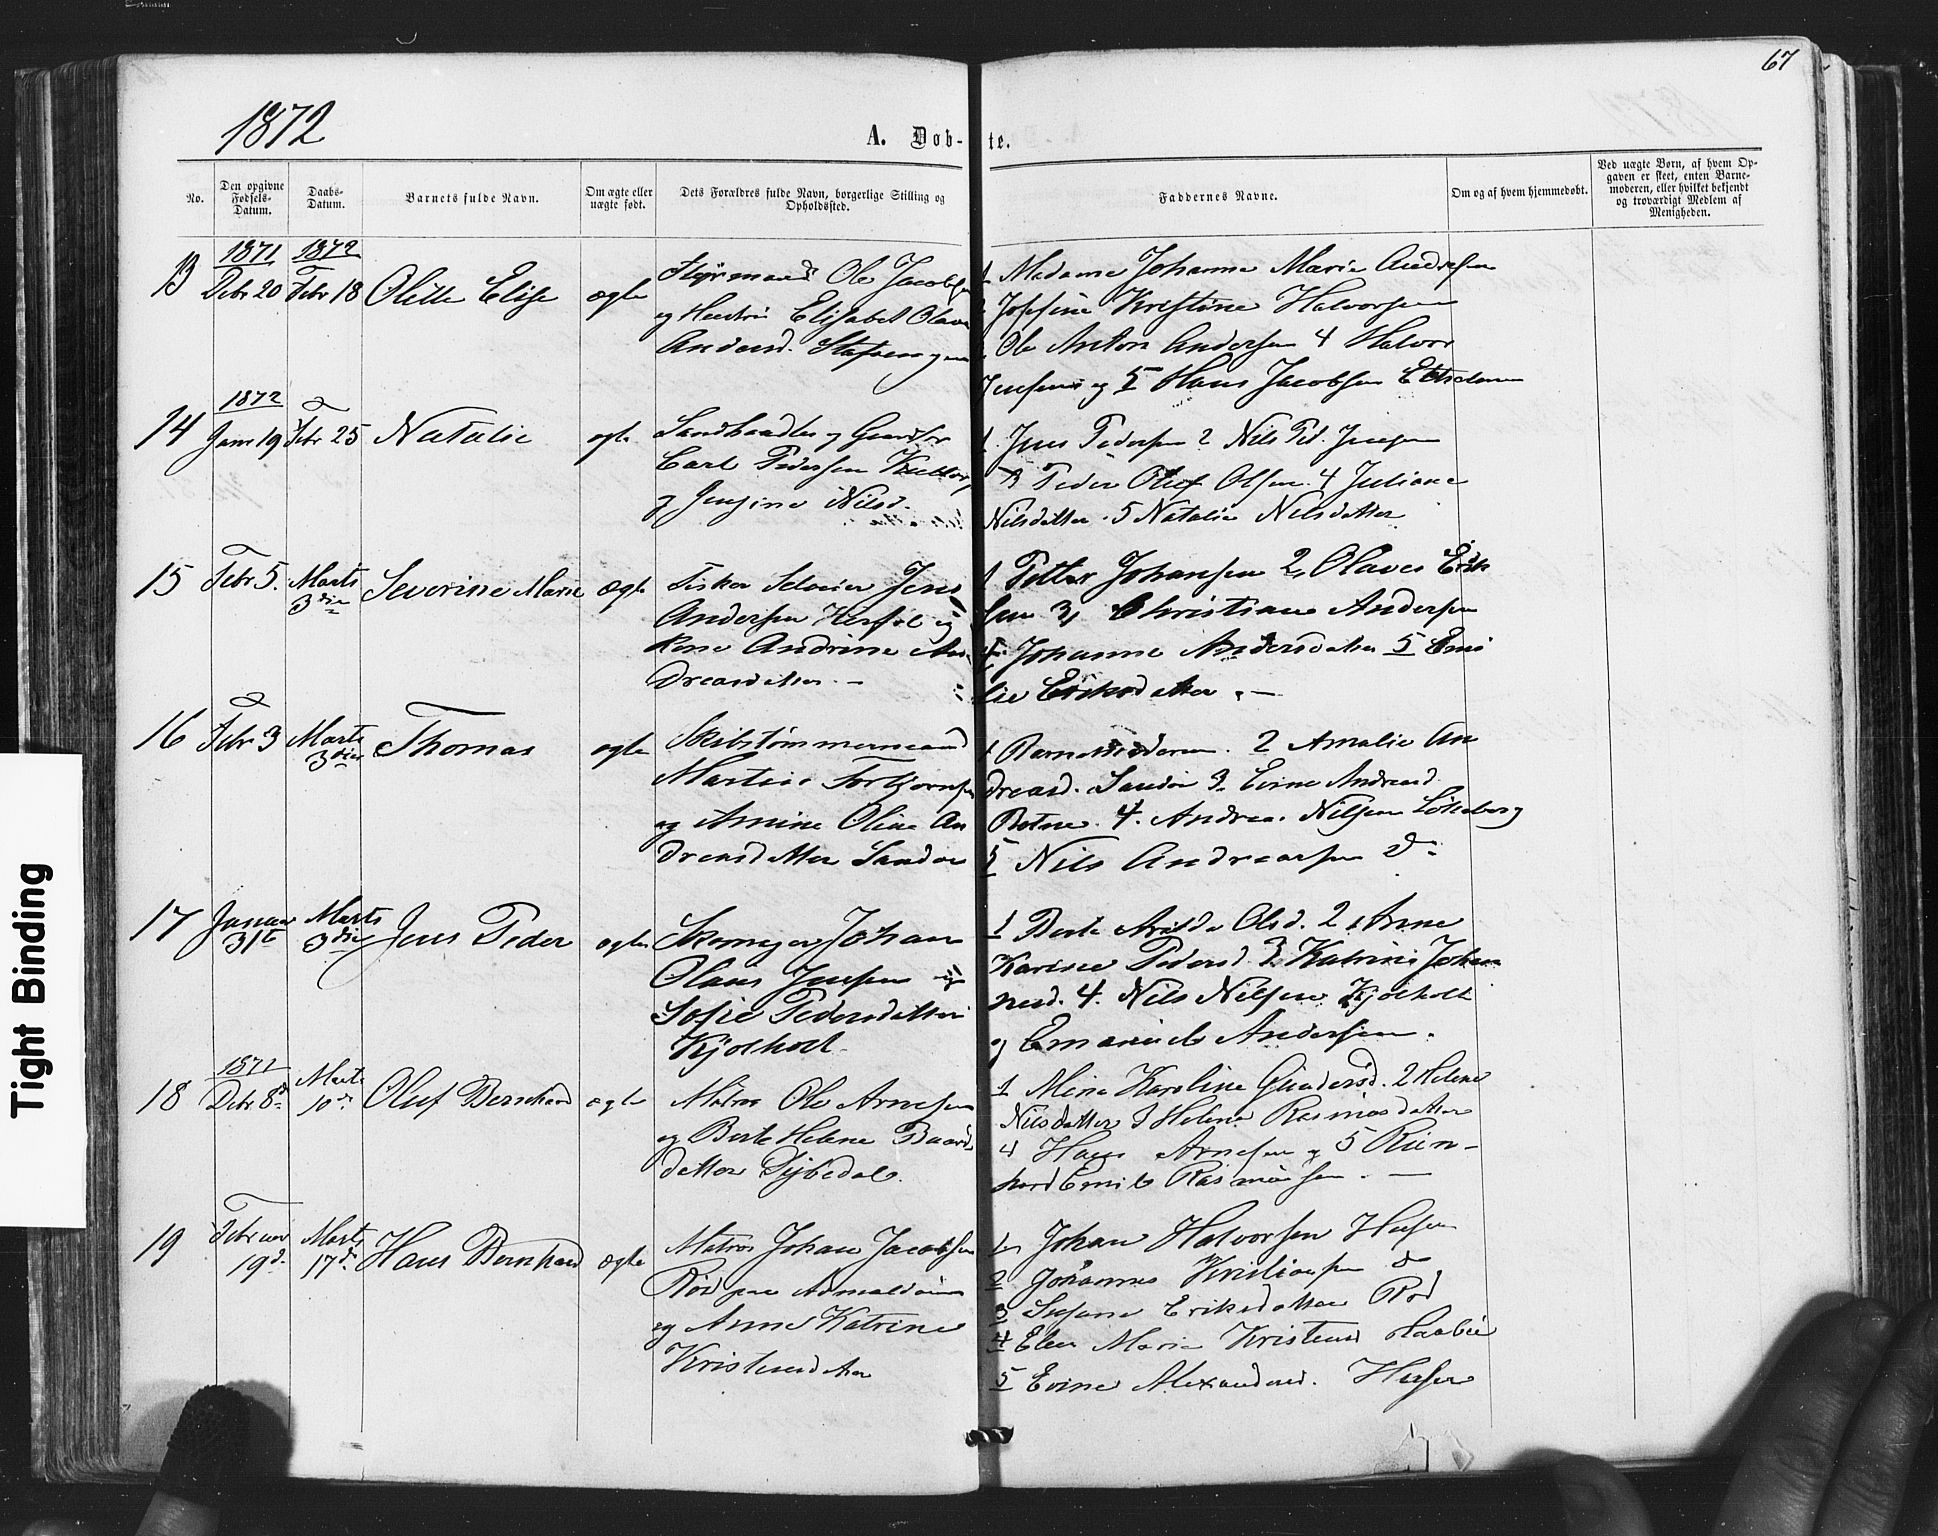 67
1872
A. Døb-te.
No.
Den opgivne Fødsels-Datum.
Daabs-Datum.
Barnets fulde Navn.
Om ægte eller uægte født.
Dets Forældres fulde Navn, borgerlige Stilling og Opholdssted.
Faddernes Navne.
Om og af hvem hjemmedøbt.
Ved uægte Børn, af hvem Opgaven er skeet, enten Barnemoderen, eller hvilket bekjendt og troværdigt Medlem af Menigheden.
1871 1872
13 Dcbr 20 Febr 18 Olille Elise ægte
Styrmand Ole Jacobsen
og Hustru Elisabet Olava
Andersd.
1 Madame Johanne Marie Andersen
Josefine Kristine Halvorsen
Ole Anton Andersen 4 Halvor
Jensen og 5 Hans Jacobsen
1872
14 Janr 19 Febr 25 Natalie ægte
og
Carl Pedersen
og Jensine Nilsd.
1. Jens Pedersen 2 Nils Ped. Jensen
3 Peder Oluf Olsen. 4 Juliane
Nilsdatter. 5 Natalie Nilsdatter
15 Febr 5. Marts 3die Severine Marie ægte
Fisker Selveier Jens
Andersen Herføl og
Kone Andrine An
dreasdatter. —
1 Petter Johansen 2, Olaves Erik
sen 3, Christian Andersen
4. Johanne Andersdatter 5 Emi
lie Eriksdatter. —
16 Febr 3 Marts 3die Thomas ægte
Skibstømmermand
Martin Torbjørnsen
og Amine Oline An
dreasdatter Sandø
1 Barnemoderen. 2 Amalie An
dreasd. Sandø 3. Evine Andreasd.
Botne. 4. Andreas Nilsen Løkeberg
5 Nils Andreassen Do
17 Januar 31te Marts 3die Jens Peder ægte
Skomager Johan
Olaus Jensen og
Sofie Pedersdatter
Kjølholt
1 Berte Olsd. 2 Anne
Karine Pedersd. 3 Katrine Johan
nesd. 4. Nils Nilsen Kjølholt
og Emanuel Andersen.
1871
18 Dcbr 8de Marts 10de Oluf Bernhard ægte
Matros Ole Arnesen
og Berte Helene Baard
datter
1 Mina Karoline Gundersd. 2 Helene
Nilsdatter 3 Helene Rasmusdatter
4 Hans Arnesen og 5 Rein-
hard Emil Rasmussen. —
19 Februar 19de Marts 17de Hans Bernhard ægte
Matros Johan Jacobsen
Rød paa Asmaløen
og Anne Katrine
Kristensdatter
1. Johan Halvorsen Huser
2 Johannes Kristiansen do
3 Susanne Eriksdatter Rød
4 Elen Maria Kristensd
5 Evine Alexandersd. Huser
Tight Binding